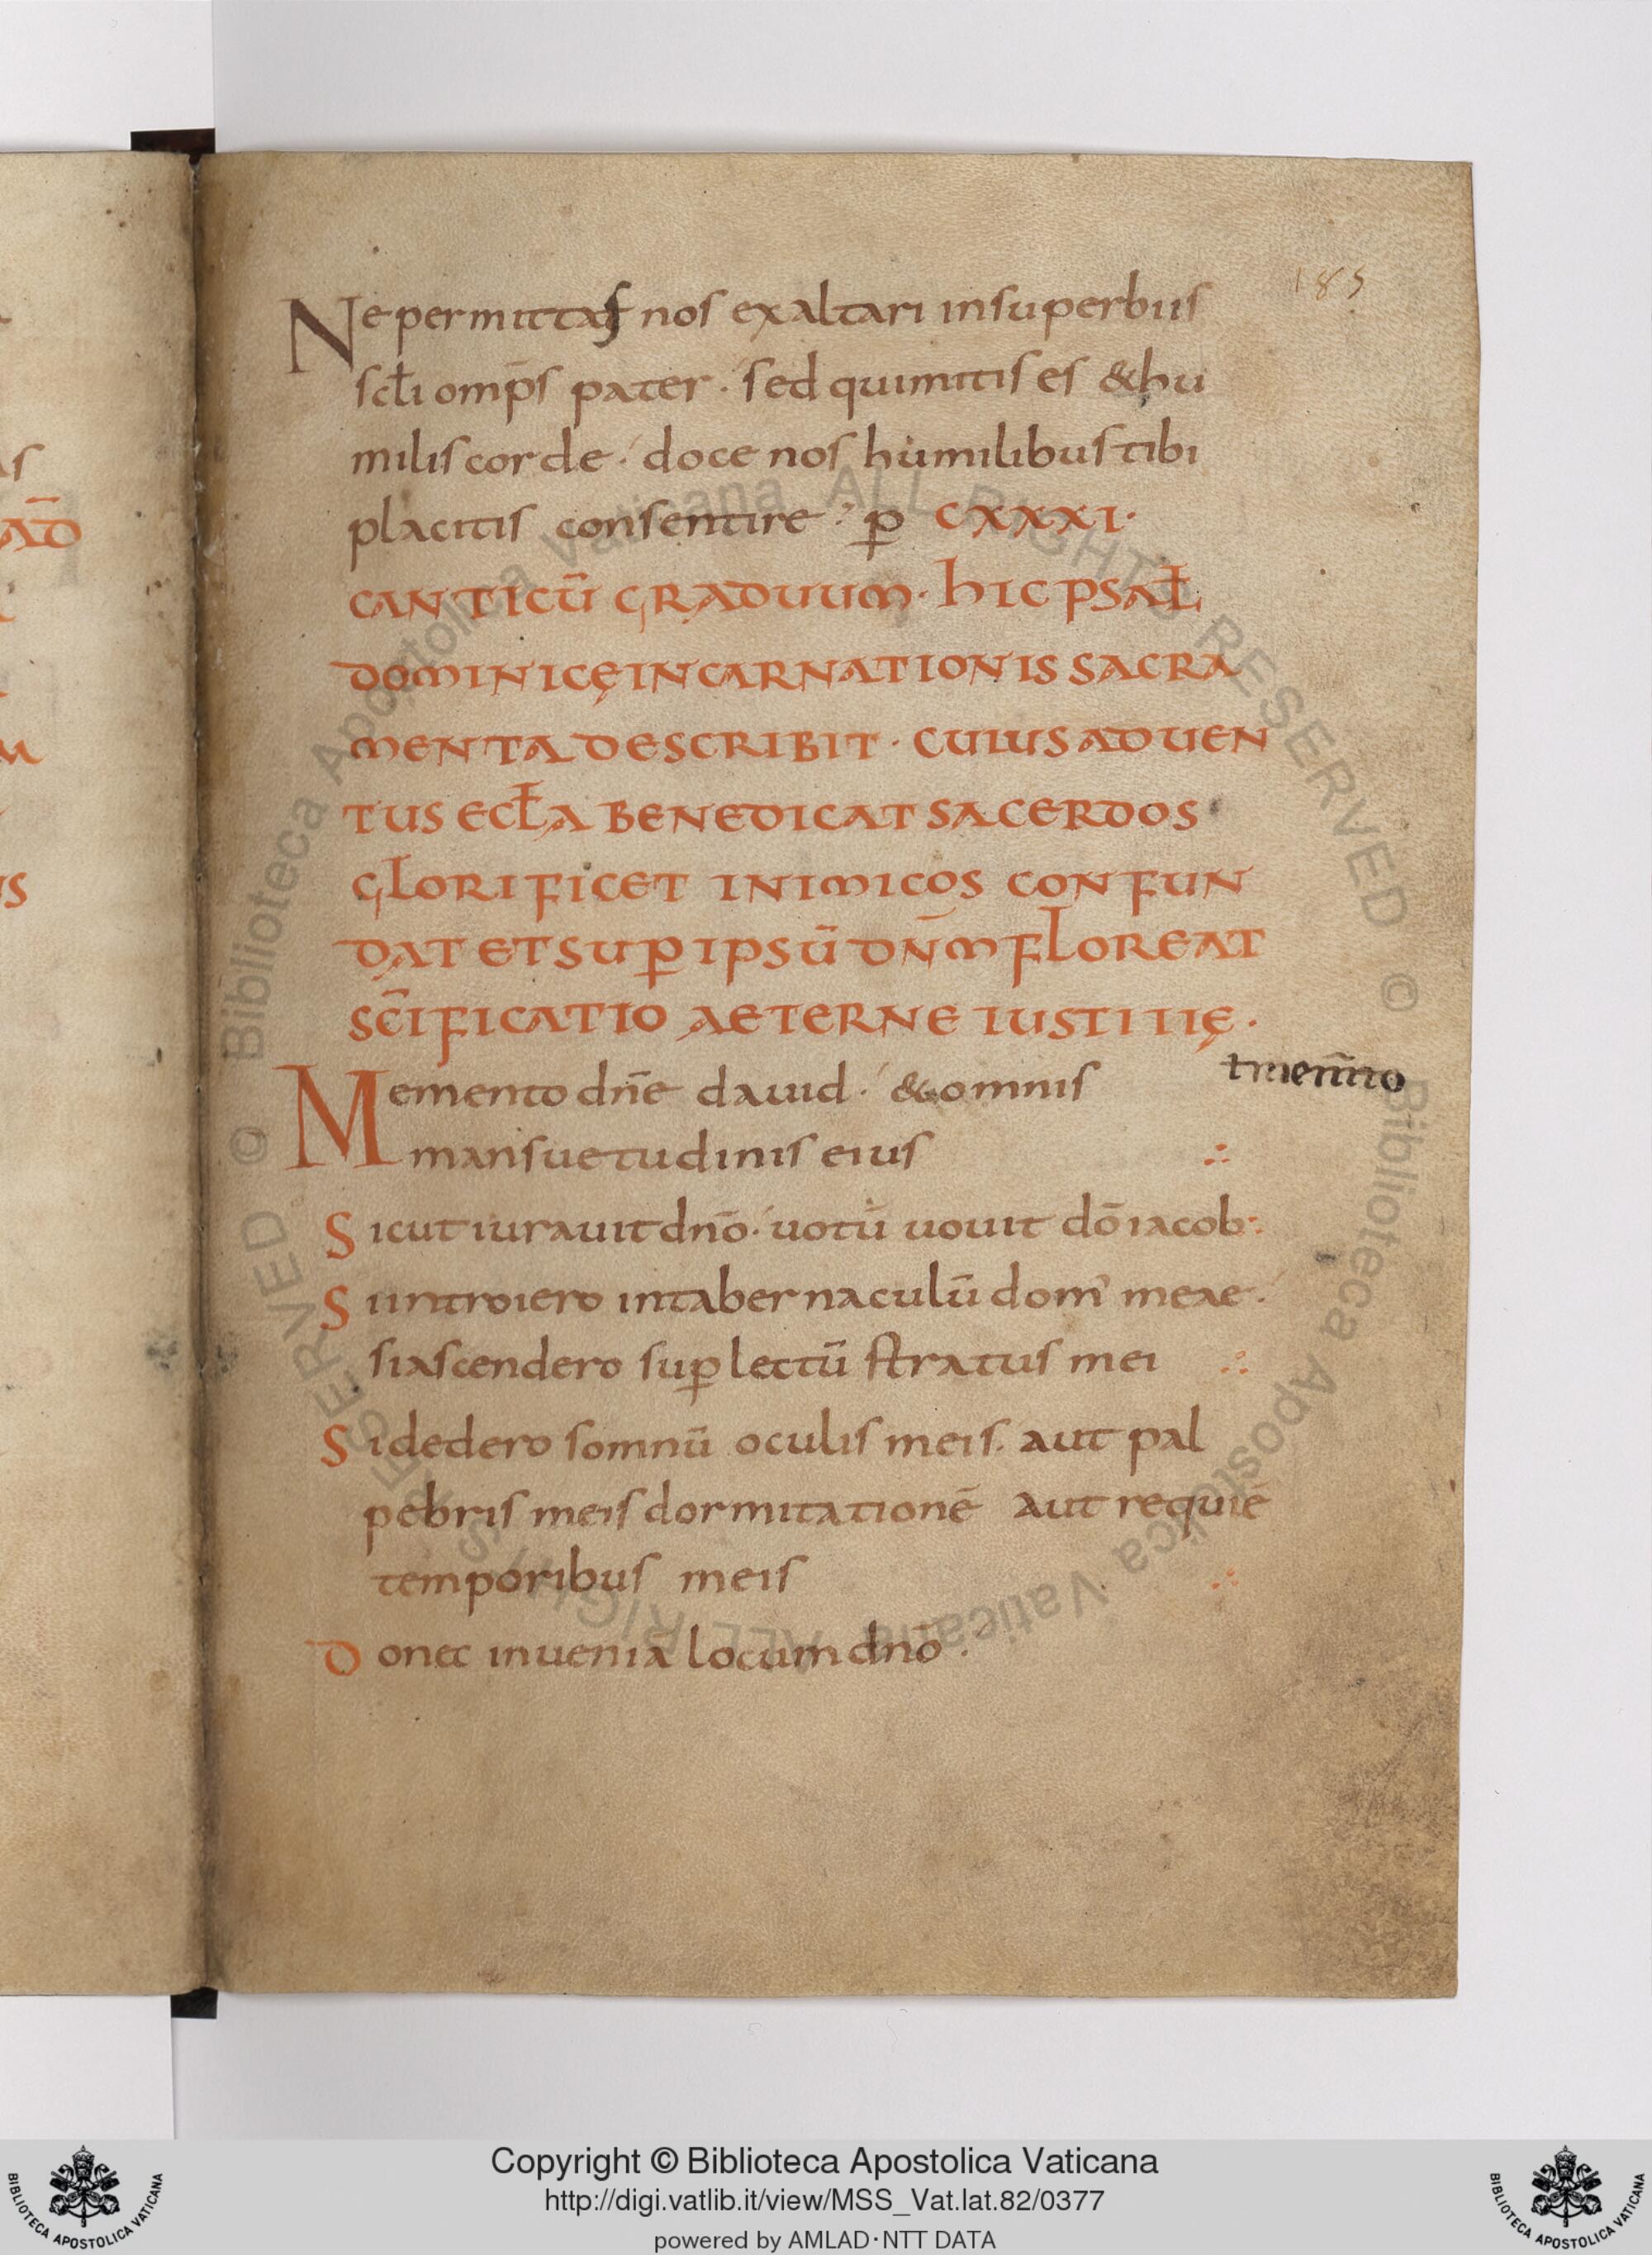 185
Ne permittas nos exaltari insuperbiis
scłi omp̄s pater · sed quimitis es & hu
milis corde · doce nos humilibus tibi
placitis consentire · ꝑ CXXXI·
CANTICŪ GRADUUM · HIC PSAŁ
DOMINICĘ INCARNATIONIS SACRA
MENTA DESCRIBIT · CUIUS ADUEN
TUS ECŁA BENEDICAT SACERDOS
GLORIFICET INIMICOS CONFUN
DAT ET SUꝑ IPSŪ DN̄M FLOREAT
SC̄IFICATIO AETERNE IUSTITIĘ ·
Memento dn̄e dauid · & omnis
mansuetudinis eius ∴
Sicut iurauit dnō · uotū uouit dō iacob :
Si introiero intabernaculū dom' meae ·
siascendero suꝑ lectū stratus mei ∴
Si dedero somnū oculis meis · aut pal
pebris meis dormitationē aut requiē
temporibus meis ∴
Donec inueniā locum dnō ·
AD
M
Copyright © Biblioteca Apostolica Vaticana
http://digi.vatlib.it/view/MSS_Vat.lat.82/0377
powered by AMLAD·NTT DATA
BIBLIOTECA APOSTOLICA VATICANA
BIBLIOTECA APOSTOLICA VATICANA
© Biblioteca Apostolica Vaticana ALL RIGHTS RESERVED
© Biblioteca Apostolica Vaticana ALL RIGHTS RESERVED